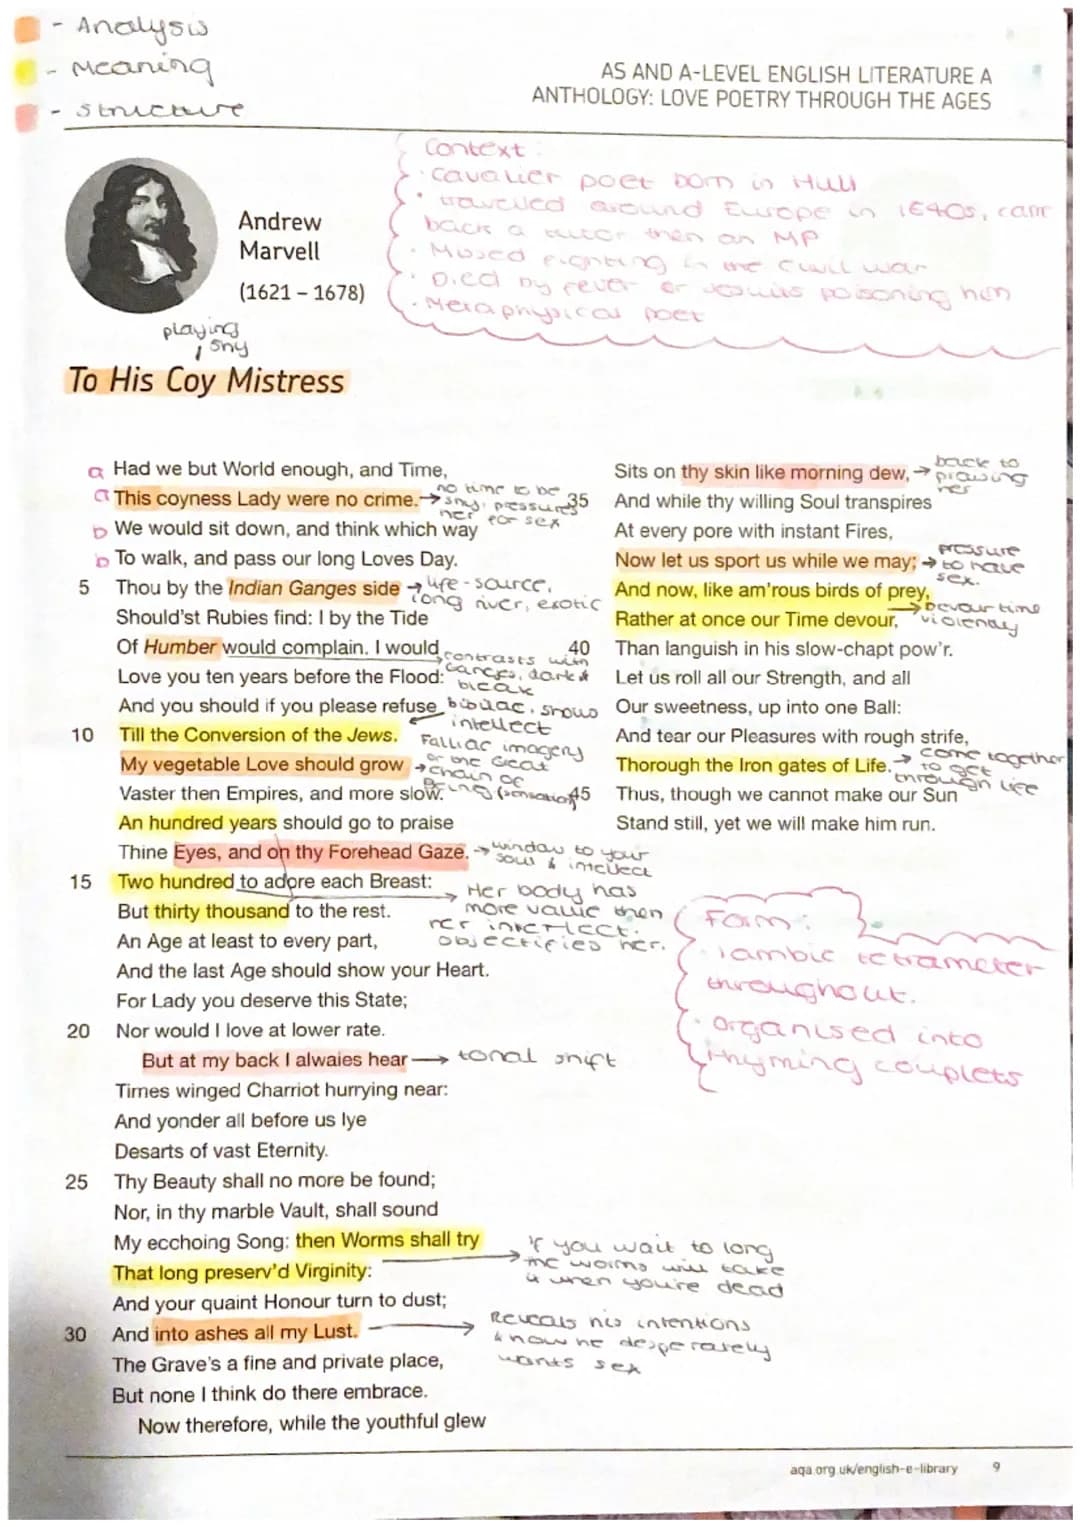 - Analysis
- Meaning
- Structure
AS AND A-LEVEL ENGLISH LITERATURE A
ANTHOLOGY: LOVE POETRY THROUGH THE AGES
Andrew
Marvell
(1621 – 1678)
Context:
· Cavalier poet born in Hull
· travelled around Europe in 1640s, came
back a tutor then an MP
· Missed fighting in the civil war
· Died by fever or Jesuits poisoning him
· Metaphysical poet
playing
shy
To His Coy Mistress
a Had we but World enough, and Time,
a This coyness Lady were no crime. → no time to be
shy, pressures
her for sex
b We would sit down, and think which way
b To walk, and pass our long Loves Day.
5 Thou by the Indian Ganges side → life-source,
long river, exotic
Should'st Rubies find: I by the Tide
Of Humber would complain. I would
contrasts with
Ganges, dark &
bleak
Love you ten years before the Flood:
And you should if you please refuse
biblical, shows
intellect
10 Till the Conversion of the Jews.
My vegetable Love should grow →
Fallic imagery
or the Great
chain of
Being (sensation)
Vaster then Empires, and more slow.
An hundred years should go to praise
Thine Eyes, and on thy Forehead Gaze. → window to your
soul & intellect
15 Two hundred to adore each Breast:
But thirty thousand to the rest.
Her body has
more value then
her intellect.
objectifies her.
An Age at least to every part,
And the last Age should show your Heart.
For Lady you deserve this State;
20 Nor would I love at lower rate.
But at my back I alwaies hear → tonal shift
Times winged Charriot hurrying near:
And yonder all before us lye
Desarts of vast Eternity.
25 Thy Beauty shall no more be found;
Nor, in thy marble Vault, shall sound
My ecchoing Song: then Worms shall try
That long preserv'd Virginity:
if you wait to long
the worms will take
it when you're dead
And your quaint Honour turn to dust;
30 And into ashes all my Lust.
Reveals his intentions
& how he desperately
wants sex
The Grave's a fine and private place,
But none I think do there embrace.
Now therefore, while the youthful glew
Sits on thy skin like morning dew, → back to
praising
her
35 And while thy willing Soul transpires
At every pore with instant Fires,
Now let us sport us while we may; → pressure
to have
sex.
And now, like am'rous birds of prey,
Rather at once our Time devour, → Devour time
violently
40 Than languish in his slow-chapt pow'r.
Let us roll all our Strength, and all
Our sweetness, up into one Ball:
And tear our Pleasures with rough strife,
Thorough the Iron gates of Life. → come together
to get
through life
45 Thus, though we cannot make our Sun
Stand still, yet we will make him run.
Form:
· Iambic tetrameter
throughout.
· organised into
rhyming couplets
aqa.org.uk/english-e-library 9